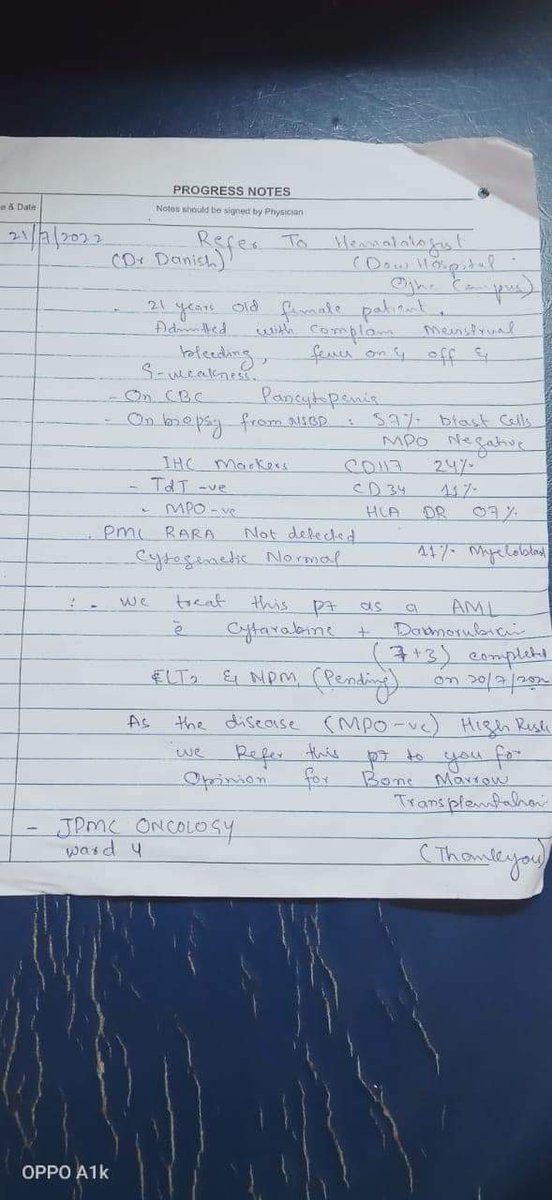 PROGRESS NOTES
e & Date Notes should be signed by Physician
21/7/2022 Refer To Hematalogist
(Dr Danish) (Dow Hospital
Ojha Campus)
- 21 years old female patient.
Admitted with complain menstrual
bleeding, fever on & off &
S-weakness.
- On CBC Pancytopenia
- On biopsy from NIBD : 57% blast cells
MPO Negative
IHC Markers CD117 24%
- TdT -ve CD34 11%
- MPO -ve HLA DR 07%
. PML RARA Not detected
Cytogenetic Normal 11% Myeloblast
: - we treat this pt as a AML
c̄ Cytarabine + Daunorubicin
(7+3) completed
FLT3 & NPM, (Pending) on 20/7/202
As the disease (MPO-ve) High Risk
we Refer this pt to you for
Opinion for Bone Marrow
Transplantation
- JPMC ONCOLOGY
ward 4 (Thankyou)
OPPO A1k